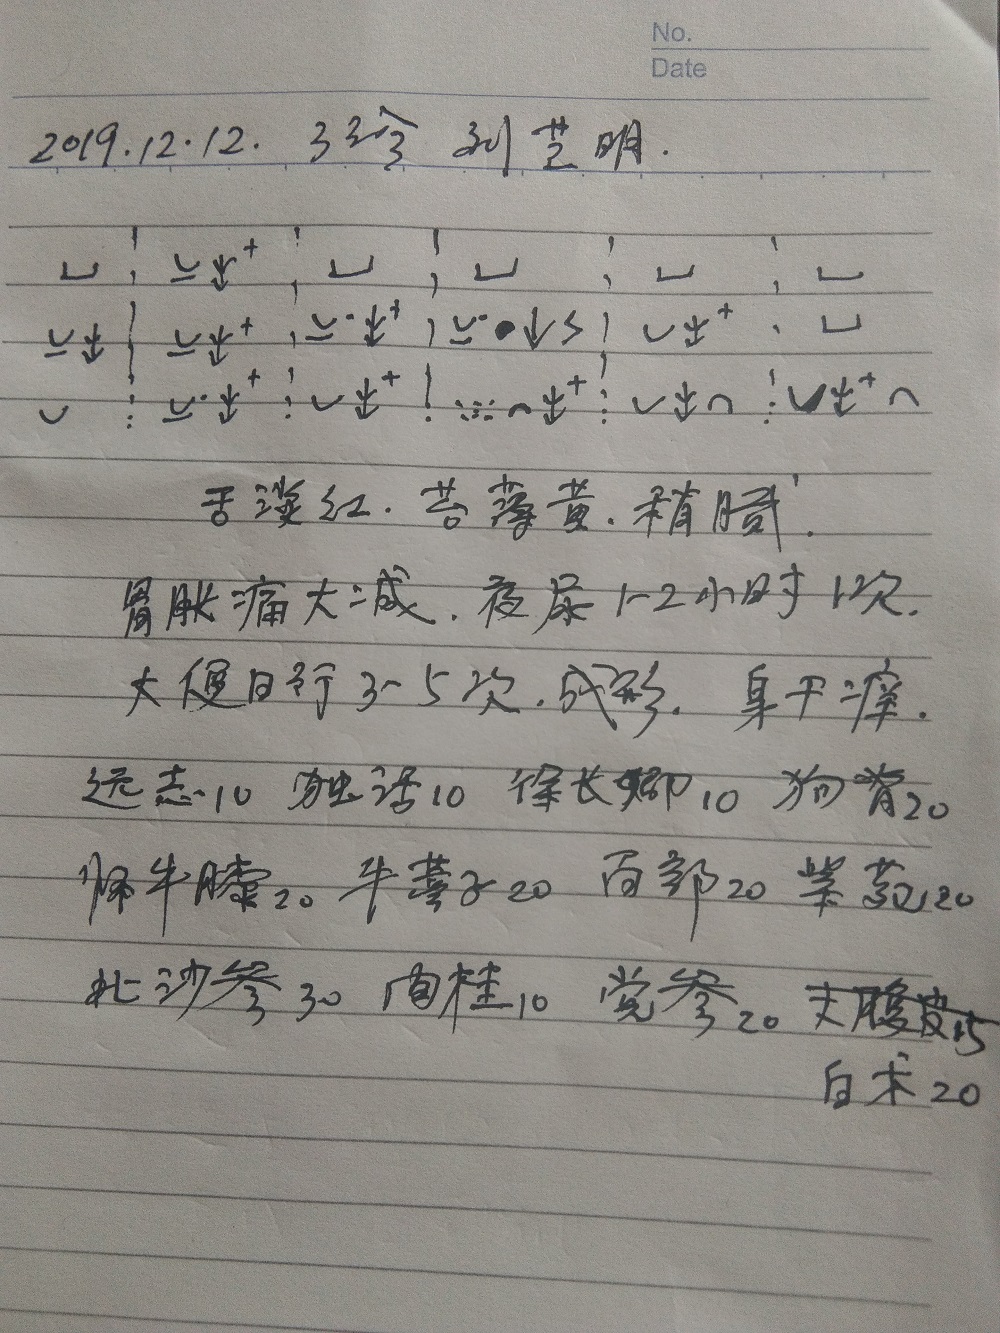 No.
Date
2019.12.12. 33诊 刘芝明.
舌淡红.苔薄黄.稍腻.
胃胀痛大减.夜尿1-2小时1次.
大便日行3-5次.成形.身干痒.
远志10 独活10 徐长卿10 狗脊20
怀牛膝20 牛蒡子20 百部20 紫菀20
北沙参30 肉桂10 党参20 大腹皮15
白术20